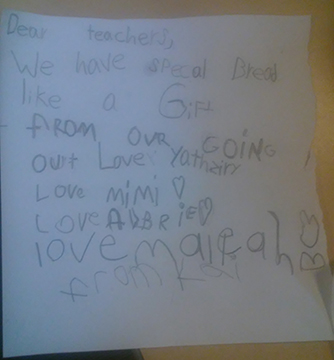 Dear teachers,
We have specal Bread
like a Gift
FROM OUR GOING
OUt Love: Yathzirr
Love mimi ♡
LOVE AUBRIE♡
love maleah
from Kai